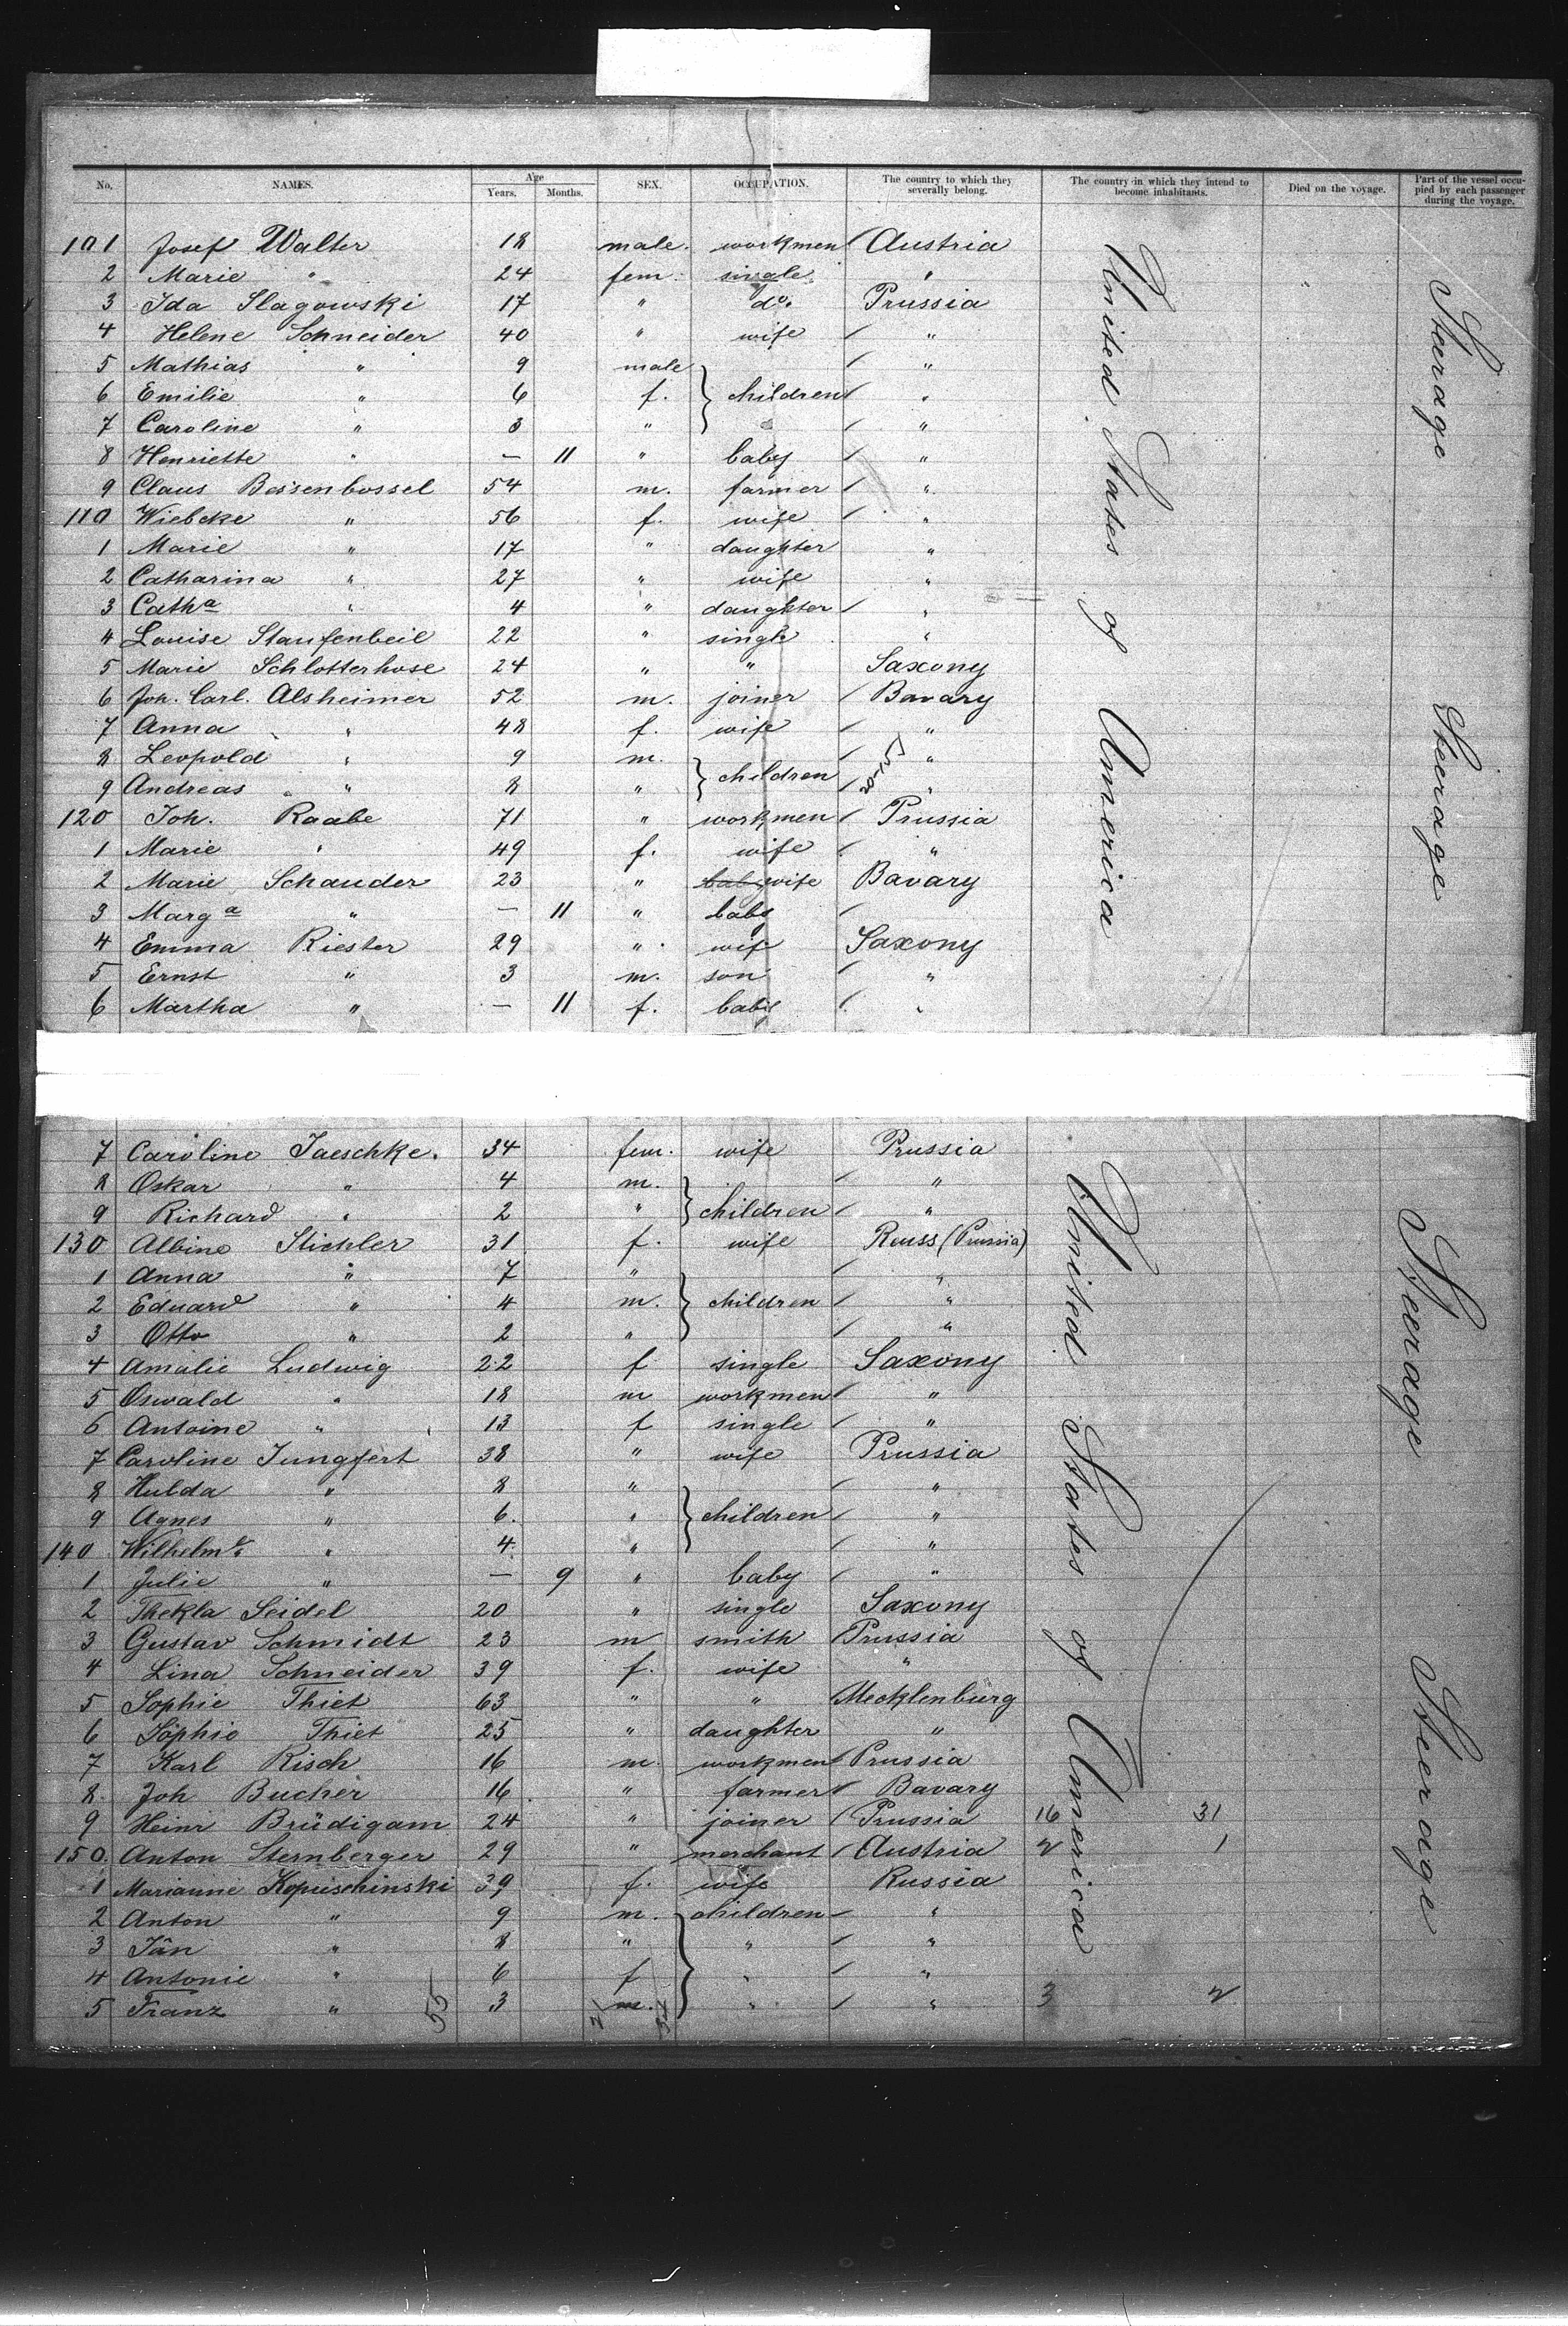 No. NAMES. Age Years. Months. SEX. OCCUPATION. The country to which they severally belong. The country in which they intend to become inhabitants. Died on the voyage. Part of the vessel occupied by each passenger during the voyage.
101 Josef Walter 18 male. workmen Austria
2 Marie " 24 fem. single "
3 Ida Slagowski 17 " do. Prussia
4 Helene Schneider 40 " wife "
5 Mathias " 9 male "
6 Emilie " 6 f. children "
7 Caroline " 3 " "
8 Henriette " — 11 " baby "
9 Claus Beisenbossel 54 m. farmer "
110 Wiebcke " 56 f. wife "
1 Marie " 17 " daughter "
2 Catharina " 27 " wife "
3 Catha " 4 " daughter "
4 Louise Staufenbeil 22 " single "
5 Marie Schlotterhose 24 " " Saxony
6 Joh. Carl. Alsheimer 52 m. joiner Bavary
7 Anna " 48 f. wife "
8 Leopold " 9 m. "
9 Andreas " 8 " children "
120 Joh. Raabe 71 " workmen Prussia
1 Marie " 49 f. wife "
2 Marie Schauder 23 " baby wife Bavary
3 Marga " — 11 " baby
4 Emma Riester 29 " wife Saxony
5 Ernst " 3 m. son "
6 Martha " — 11 f. baby "
United States of America
Steerage Steerage
7 Caroline Jaeschke. 34 fem. wife Prussia
8 Oskar " 4 m. "
9 Richard " 2 " children "
130 Albine Stichler 31 f. wife Reuss (Prussia)
1 Anna " 7 " "
2 Eduard " 4 m. children "
3 Otto " 2 " "
4 Amalie Ludwig 22 f single Saxony
5 Oswald " 18 m workmen "
6 Antoine " 13 f single "
7 Caroline Jungfert 38 " wife Prussia
8 Hulda " 8 " "
9 Agnes " 6. " children "
140 Wilhelme " 4. " "
1 Julie " — 9 " baby "
2 Thekla Seidel 20 " single Saxony
3 Gustav Schmidt 23 m smith Prussia
4 Lina Schneider 39 f. wife "
5 Sophie Thiet 63 " " Mecklenburg
6 Sophie Thiet 25 " daughter "
7 Karl Risch 16 m. workmen Prussia
8. Joh Bucher 16 " farmer Bavary
9 Heinr Brüdigam 24 " joiner Prussia 16 31
150. Anton Sternberger 29 " merchant Austria 2 1
1 Marianne Kopuschinski 39 f. wife Russia
2 Anton " 9 m. children "
3 Jân " 8 " " "
4 Antonie " 6 f " "
5 Franz " 3 m. " " 3 2
55
United States of America
Steerage Steerage